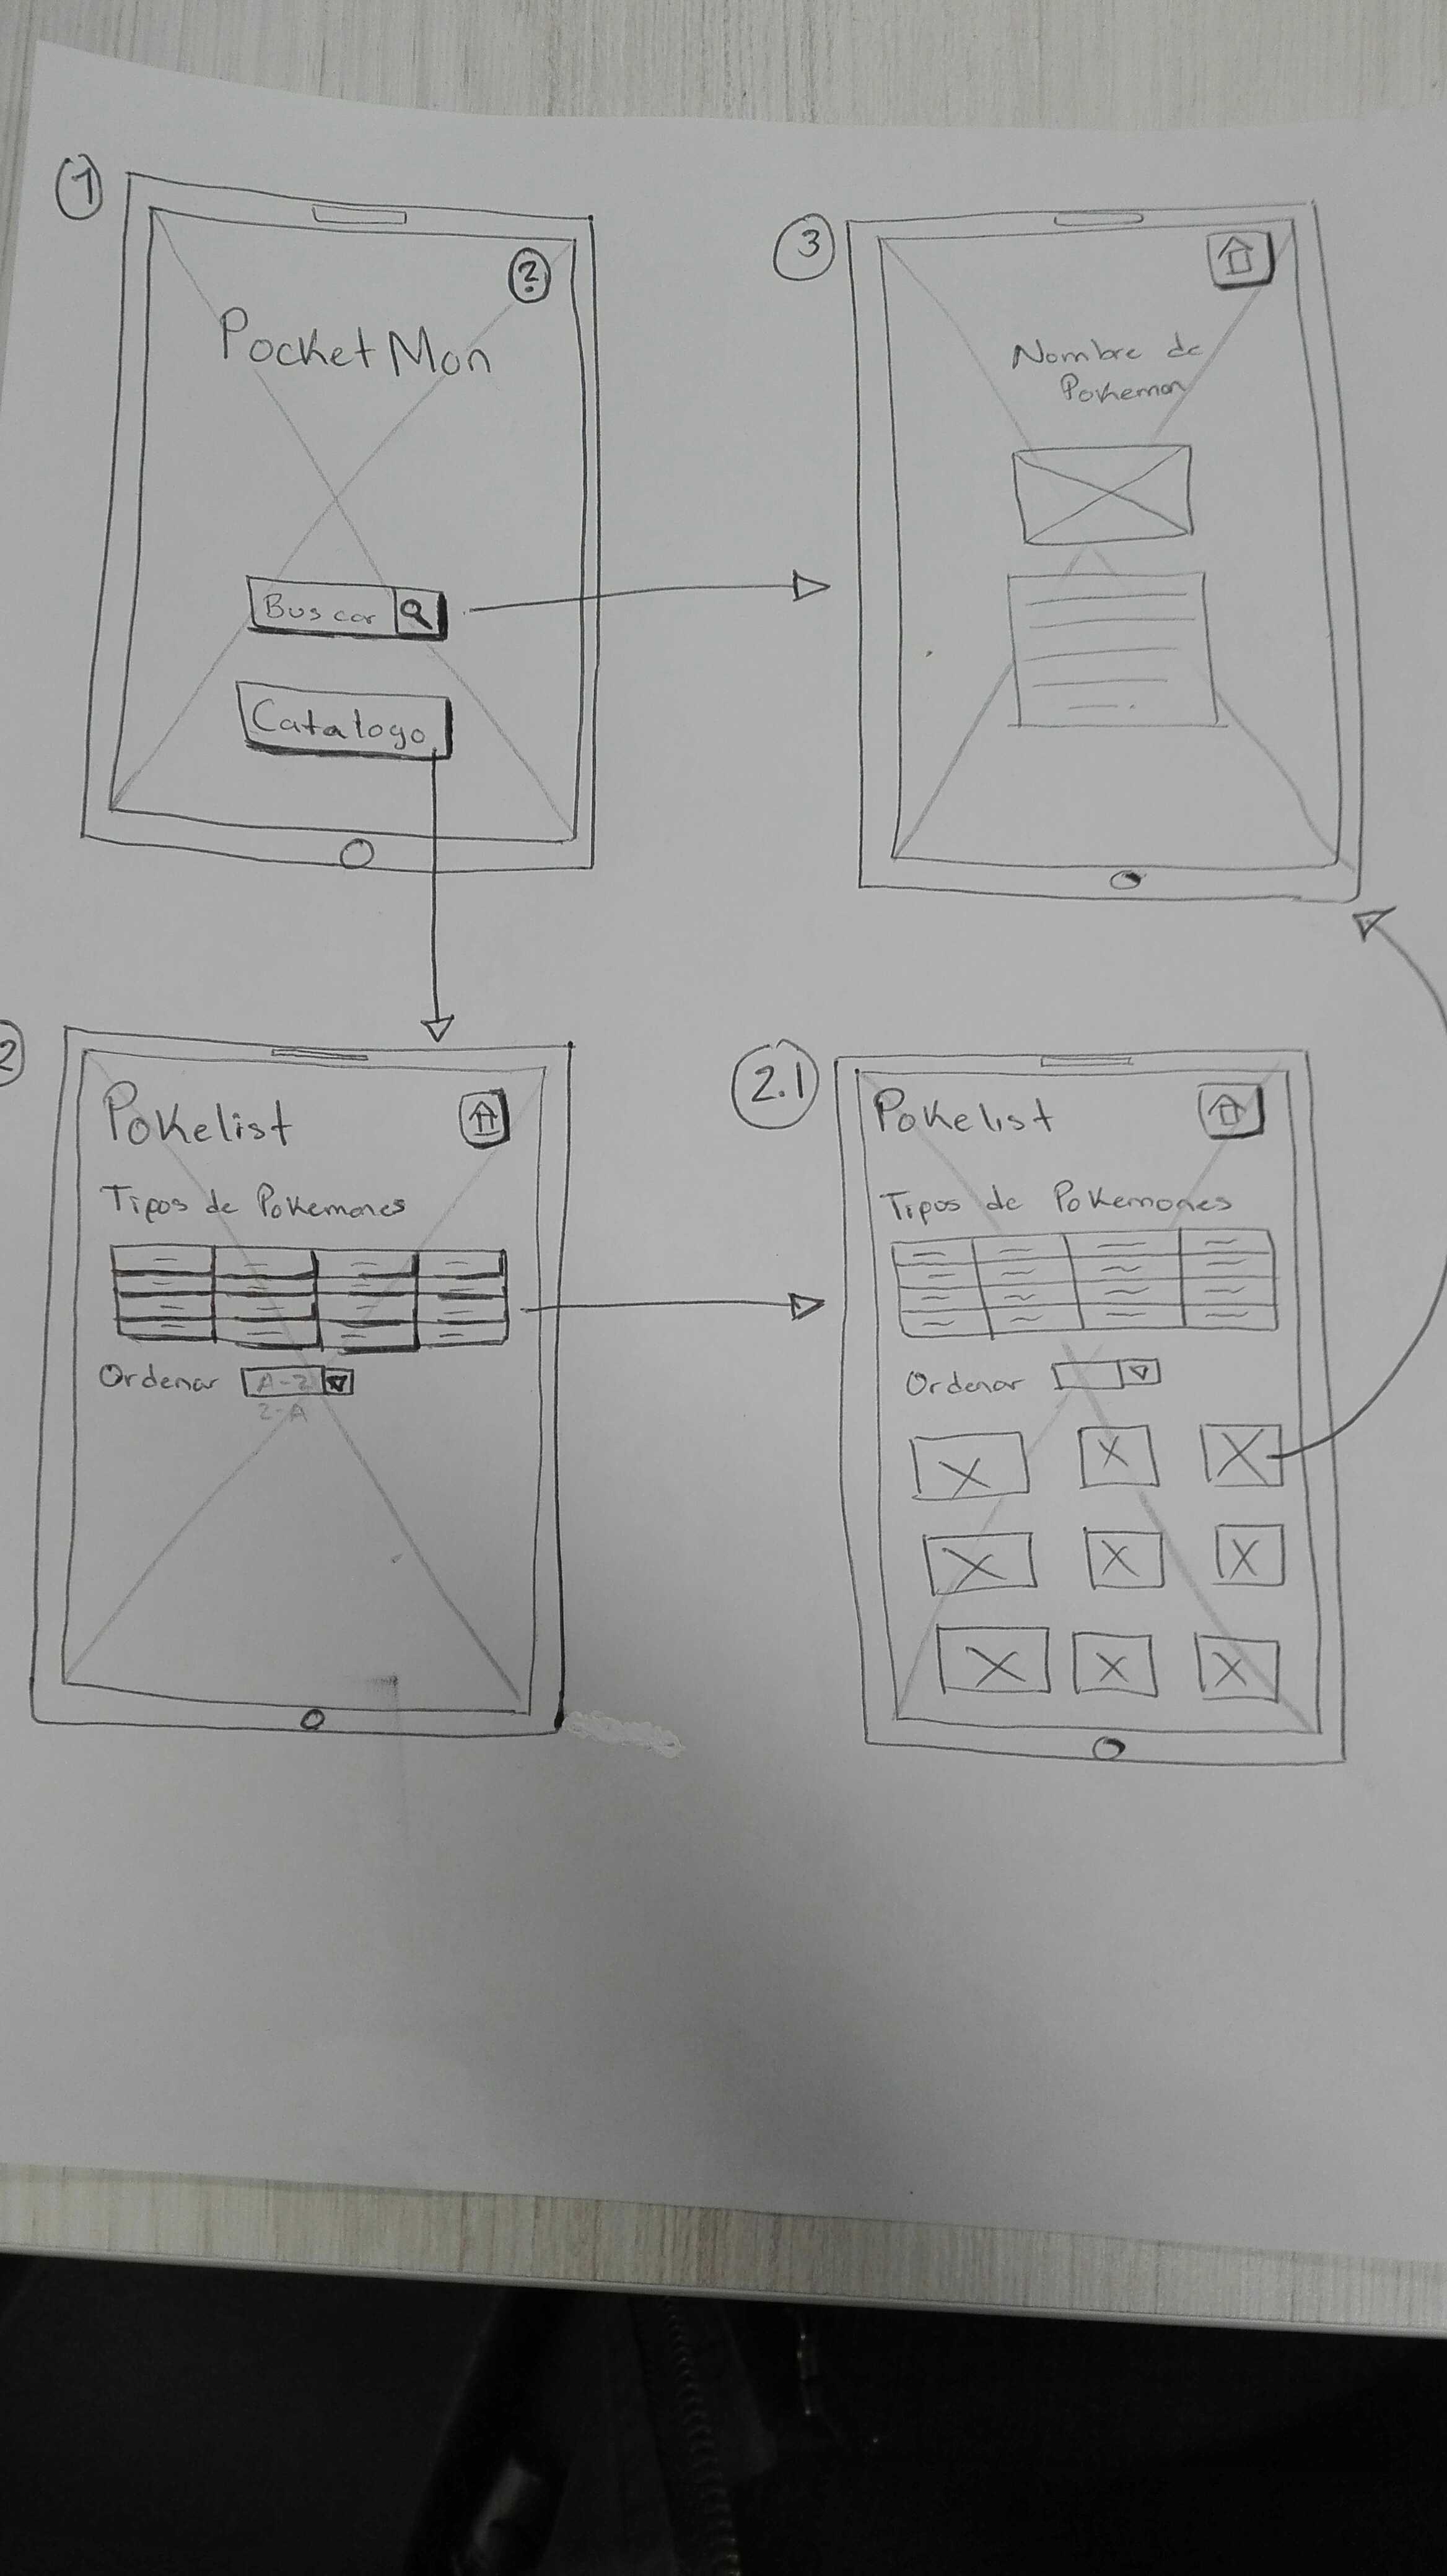 1
?
PocketMon
Buscar
Catalogo
3
Nombre de
Pokemon
2
Pokelist
Tipos de Pokemones
Ordenar A-Z
Z-A
2.1
Pokelist
Tipos de Pokemones
Ordenar